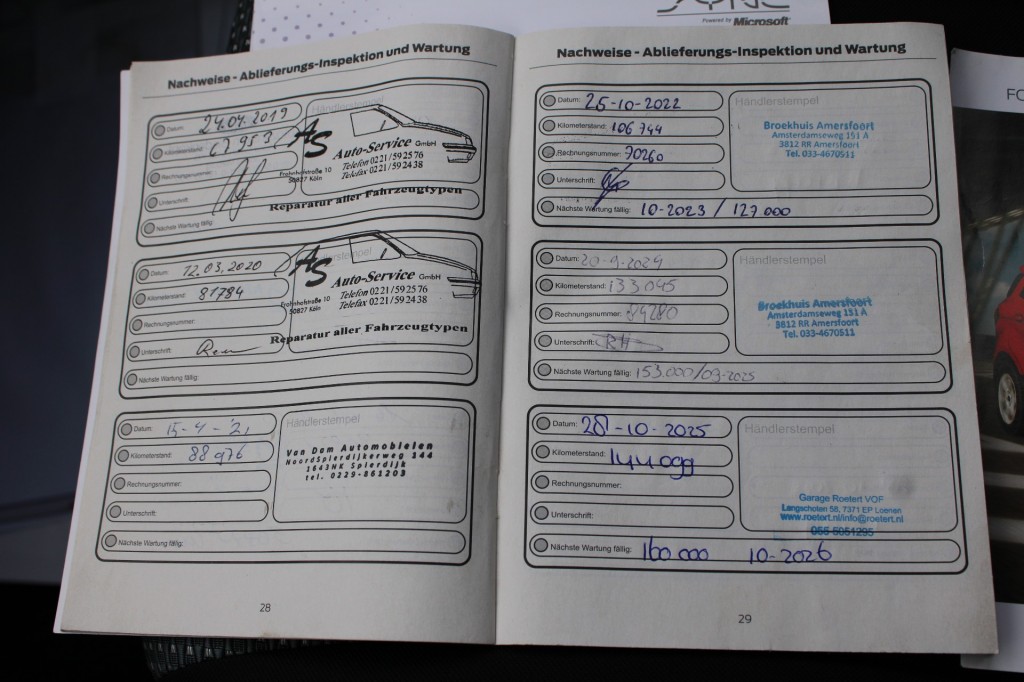 Powered by Microsoft
Nachweise - Ablieferungs-Inspektion und Wartung
Datum: 24.04.2019
Kilometerstand: 67953
Rechnungsnummer:
Unterschrift:
Nächste Wartung fällig:
Händlerstempel
AS
Auto-Service GmbH
Telefon 0221/592576
Telefax 0221/592438
Frohnhofstraße 10
50827 Köln
Reparatur aller Fahrzeugtypen
Datum: 12.03.2020
Kilometerstand: 81794
Rechnungsnummer:
Unterschrift:
Nächste Wartung fällig:
Händlerstempel
AS
Auto-Service GmbH
Telefon 0221/592576
Telefax 0221/592438
Frohnhofstraße 10
50827 Köln
Reparatur aller Fahrzeugtypen
Datum: 15-4-'21
Kilometerstand: 88976
Rechnungsnummer:
Unterschrift:
Nächste Wartung fällig:
Händlerstempel
Van Dam Automobielen
Noordspierdijkerweg 144
1643NK Spierdijk
tel. 0229-861203
28
Nachweise - Ablieferungs-Inspektion und Wartung
Datum: 25-10-2022
Kilometerstand: 106744
Rechnungsnummer: 70260
Unterschrift:
Nächste Wartung fällig: 10-2023 / 127000
Händlerstempel
Broekhuis Amersfoort
Amsterdamseweg 151 A
3812 RR Amersfoort
Tel. 033-4670511
Datum: 20-9-2024
Kilometerstand: 133045
Rechnungsnummer: 84280
Unterschrift:
Nächste Wartung fällig: 153.000/09-2025
Händlerstempel
Broekhuis Amersfoort
Amsterdamseweg 151 A
3812 RR Amersfoort
Tel. 033-4670511
Datum: 28-10-2025
Kilometerstand: 144099
Rechnungsnummer:
Unterschrift:
Nächste Wartung fällig: 160000 10-2026
Händlerstempel
Garage Roetert VOF
Langscholen 58, 7371 EP Loenen
www.roetert.nl/info@roetert.nl
055-5051295
29
FO